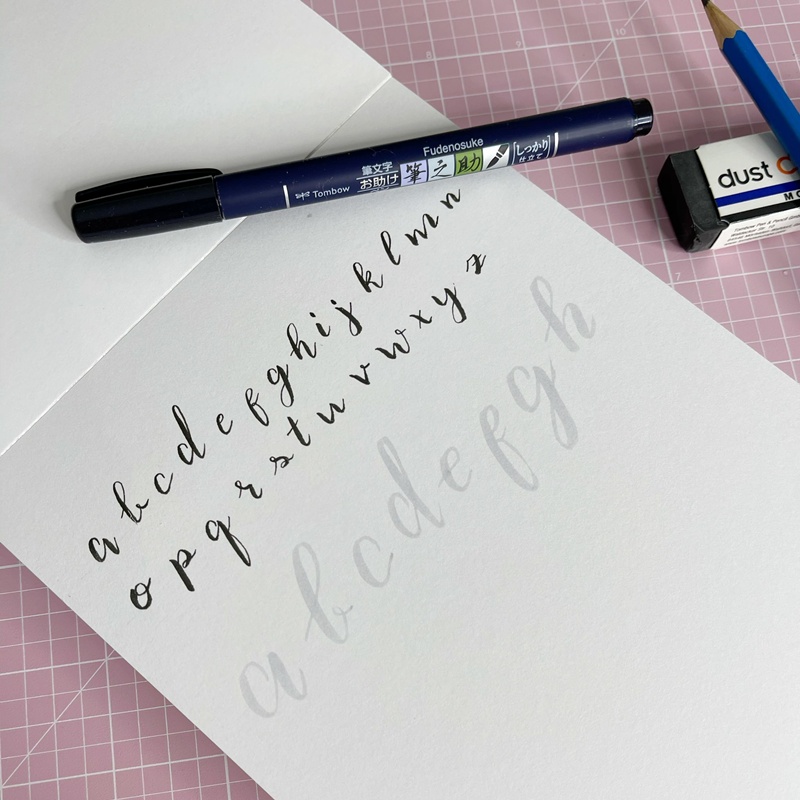 Tombow
筆文字
お助け
筆之助
Fudenosuke
しっかり
仕立て
dust
MO
a b c d e f g h i j k l m n
o p q r s t u v w x y z
a b c d e f g h